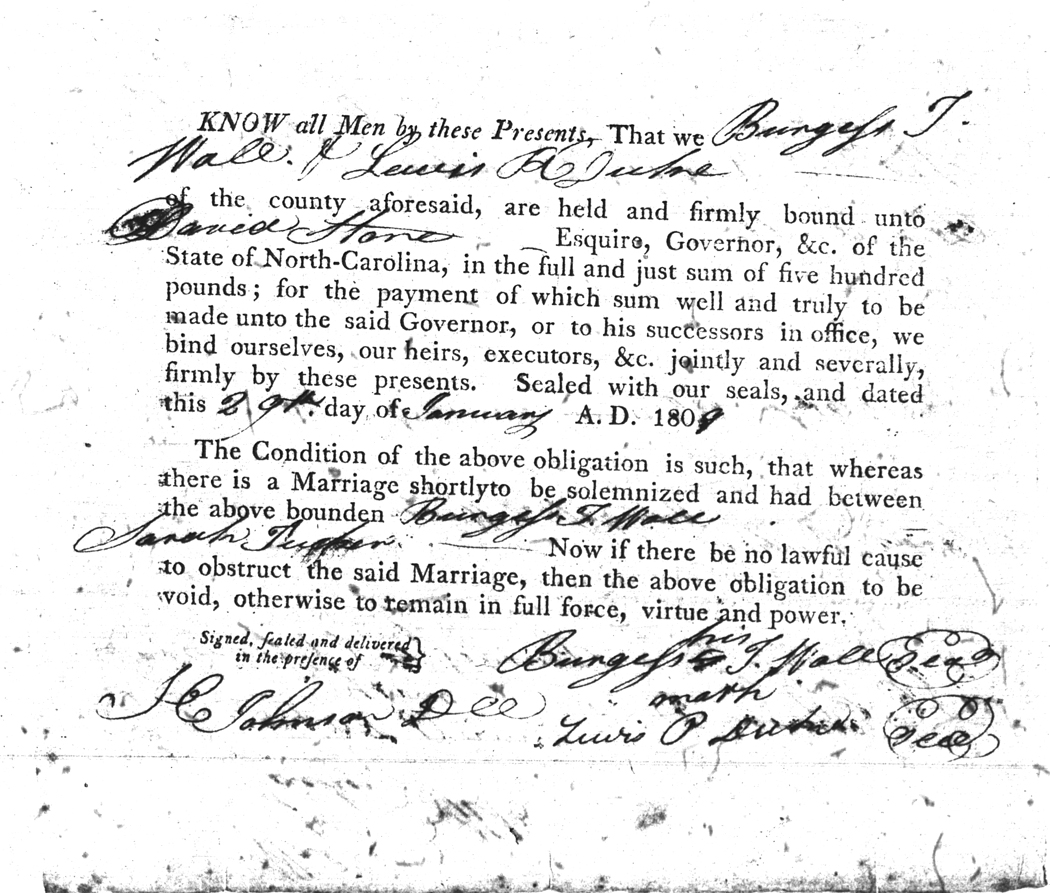 KNOW all Men by these Presents, That we Burgess T.
Wall. & Lewis
of the county aforesaid, are held and firmly bound unto
David Stone Esquire, Governor, &c. of the
State of North-Carolina, in the full and just sum of five hundred
pounds; for the payment of which sum well and truly to be
made unto the said Governor, or to his successors in office, we
bind ourselves, our heirs, executors, &c. jointly and severally,
firmly by these presents. Sealed with our seals, and dated
this 29th. day of January A. D. 1809
The Condition of the above obligation is such, that whereas
there is a Marriage shortlyto be solemnized and had between
the above bounden Burgess T. Wall
Sarah Now if there be no lawful cause
to obstruct the said Marriage, then the above obligation to be
void, otherwise to remain in full force, virtue and power.
Signed, sealed and delivered
in the presence of
his
Burgess T. Wall Seal
mark
Johnson
Lewis P Seal